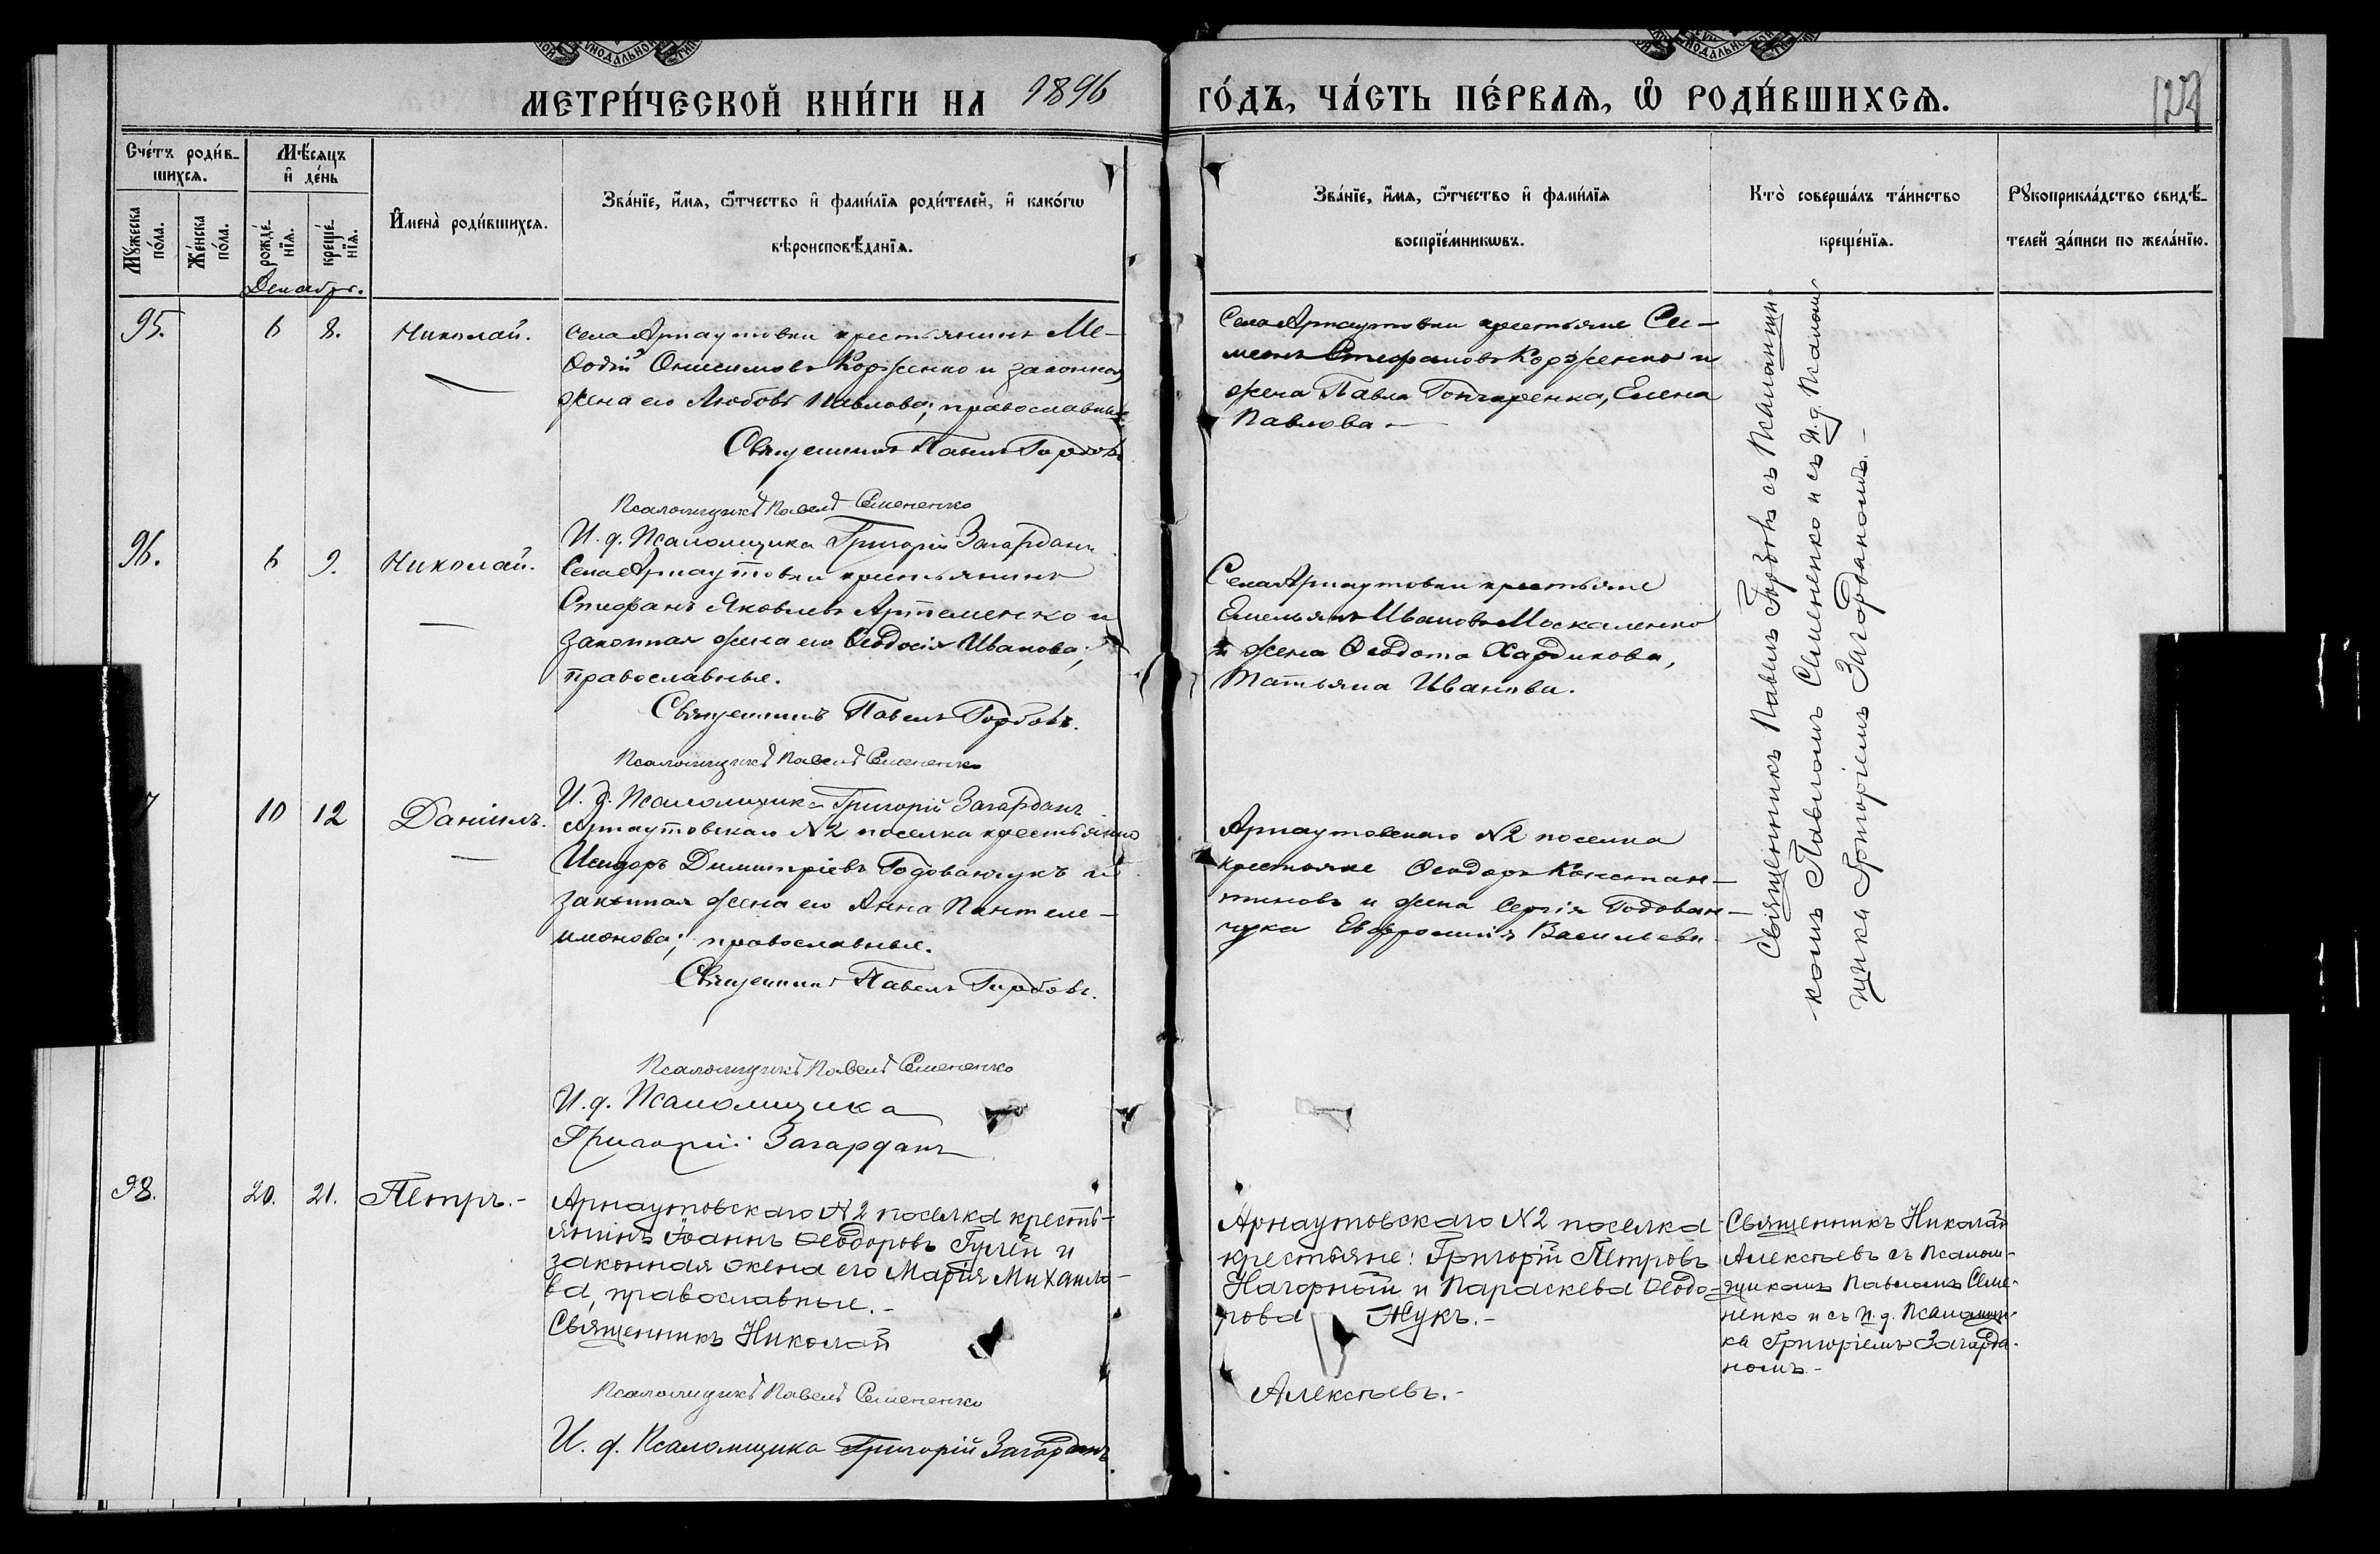 МЕТРИ́ЧЕСКОЙ КНИ́ГИ НА 1896 ГО́ДЪ, ЧА́СТЬ ПЕ́РВАѦ, Ѡ҆ РОДИ́ВШИХСѦ.
Сче́тъ роди́в-
шихсѧ.
Мꙋ́жеска по́ла.
Же́нска по́ла.
Мѣ́сѧцъ
и҆ де́нь
рожде́-
нїѧ.
креще́-
нїѧ.
Декабрь.
И҆мена̀ роди́вшихсѧ.
Зва́нїе, и҆́мѧ, ѻ҆́тчество и҆ фами́лїѧ роди́телей, и҆ како́гѡ
вѣроисповѣ́данїѧ.
Зва́нїе, и҆́мѧ, ѻ҆́тчество и҆ фами́лїѧ
воспрїе́мникѡвъ.
Кто̀ соверша́лъ та́инство
креще́нїѧ.
Рꙋкоприкла́дство свидѣ́-
телей за́писи по жела́нїю.
95.
6
8.
Николай.
села Арнаутовки крестьянинъ Ме-
ѳодій Онисимовъ Корженко и законная
жена его Любовь Павлова; православные
Священникъ Павелъ Горбовъ
Псаломщикъ Павелъ Семененко
И. д. Псаломщика Григорій Загарданъ
Села Арнаутовки крестьяне Си-
меонъ Стефановъ Корженко и
жена Павла Гончаренка, Елена
Павлова
96.
6
9.
Николай.
Села Арнаутовки крестьянинъ
Стефанъ Яковлевъ Артеменко и
законная жена его Ѳеодосія Иванова;
православные.
Священникъ Павелъ Горбовъ.
Псаломщикъ Павелъ Семененко
И. д. Псаломщика Григорій Загарданъ
Села Арнаутовки крестьяне
Емельянъ Ивановъ Москаленко
и жена Ѳеодота Хардикова,
Татьяна Иванова.
7
10
12
Даніилъ.
Арнаутовскаго N2 поселка крестьянинъ
Исидоръ Димитріевъ Годованчукъ и
законная жена его Анна Пантеле-
имонова; православные.
Священникъ Павелъ Горбовъ.
Псаломщикъ Павелъ Семененко
И. д. Псаломщика
Григорій Загарданъ
Арнаутовскаго N2 поселка
крестьяне Ѳеодоръ Констан-
тиновъ и жена Сергія Годован-
чука Евфросинія Васильева
Священникъ Павелъ Горбовъ съ Псаломщи-
комъ Павломъ Семененко и съ И. д. Псалом-
щика Григоріемъ Загорданомъ.-
98.
20.
21.
Петръ.-
Арнаутовскаго N2 поселка кресть-
янинъ Іоаннъ Ѳеодоровъ Гулей и
законная жена его Марія Михаило-
ва, православные.-
Священникъ Николай
Псаломщикъ Павелъ Семененко
И. д. Псаломщика Григорій Загарданъ
Арнаутовскаго N2 поселка
крестьяне: Григорій Петровъ
Нагорный и Параскева Ѳеодо-
рова Жукъ.-
Алексѣевъ.-
Священникъ Николай
Алексѣевъ съ Псалом-
щикомъ Павломъ Семе-
ненко и съ И. д. Псаломщи-
ка Григоріемъ Загорда-
номъ.-